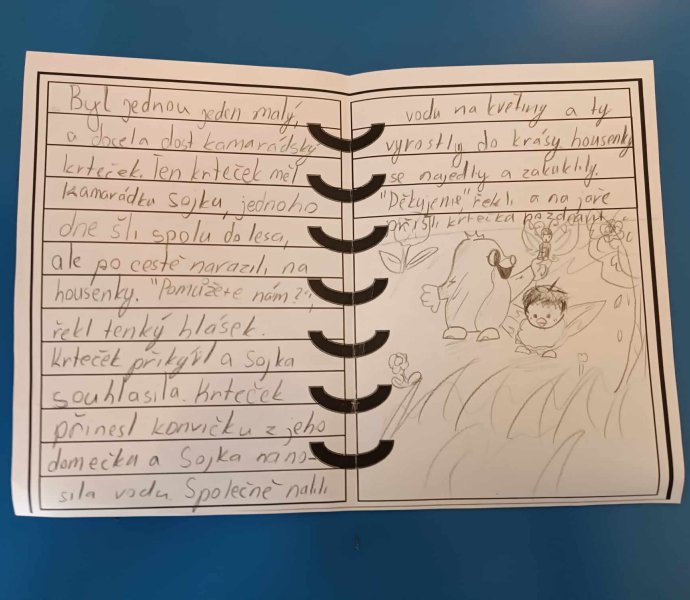 Byl jednou jeden malý,
a docela dost kamarádský
krteček. Ten krteček měl
kamarádku Sojku, jednoho
dne šli spolu do lesa,
ale po cestě narazili na
housenky. "Pomůžete nám?",
řekl tenký hlásek.
Krteček přikývl a Sojka
souhlasila. Krteček
přinesl konvičku z jeho
domečku a Sojka nano-
sila vodu. Společně nalili
vodu na květiny a ty
vyrostly do krásy housenky
se najedly a zakuklily.
"Děkujeme" řekli a na jaře
přišli krtečka pozdravit.